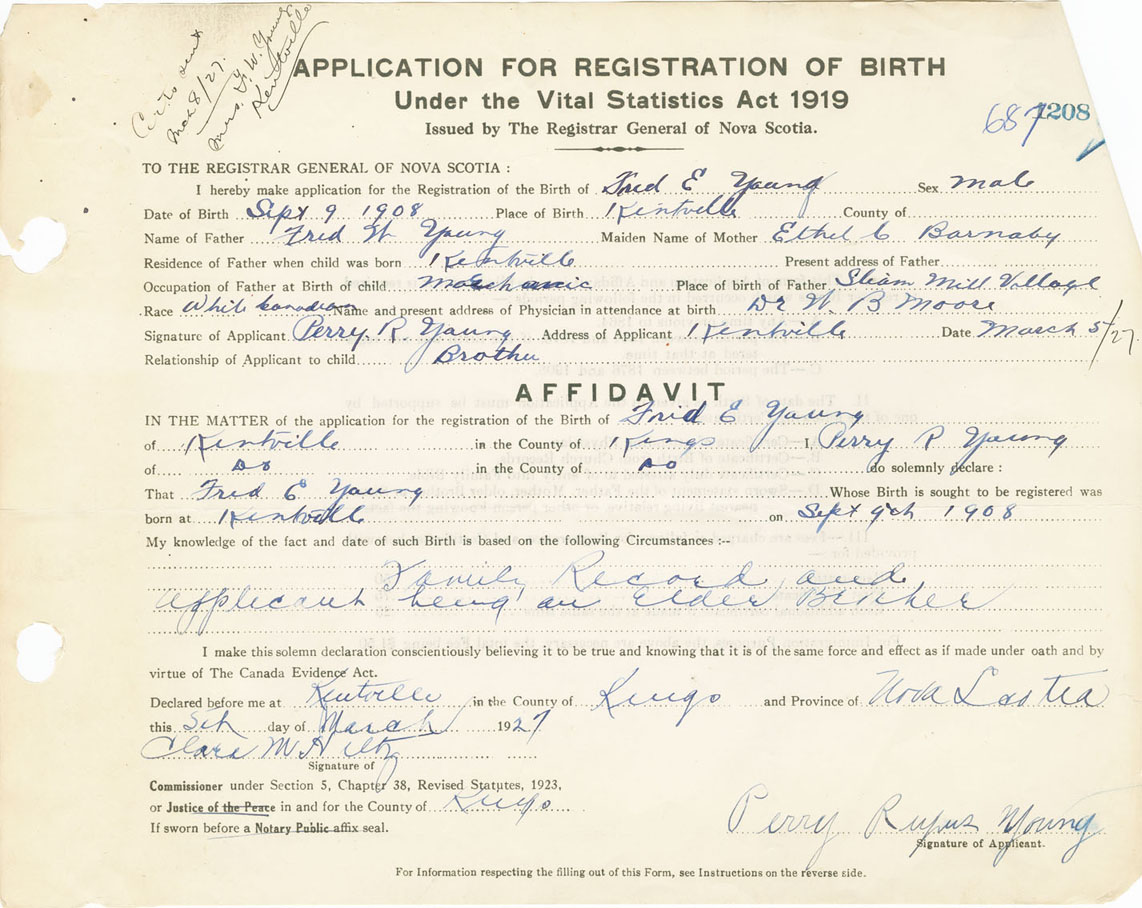 Certs sent
Mar 8/27.
Mrs. F. W. Young
Kentville
APPLICATION FOR REGISTRATION OF BIRTH
Under the Vital Statistics Act 1919
Issued by The Registrar General of Nova Scotia.
687 1208
TO THE REGISTRAR GENERAL OF NOVA SCOTIA :
I hereby make application for the Registration of the Birth of Fred E Young Sex Male
Date of Birth Sept 9 1908 Place of Birth Kentville County of
Name of Father Fred W Young Maiden Name of Mother Ethel C Barnaby
Residence of Father when child was born Kentville Present address of Father
Occupation of Father at Birth of child Mechanic Place of birth of Father Steam Mill Village
Race White Canadian Name and present address of Physician in attendance at birth Dr W B Moore
Signature of Applicant Perry R Young Address of Applicant Kentville Date March 5/27.
Relationship of Applicant to child Brother
AFFIDAVIT
IN THE MATTER of the application for the registration of the Birth of Fred E Young
of Kentville in the County of Kings I, Perry R Young
of Do in the County of Do do solemnly declare :
That Fred E Young Whose Birth is sought to be registered was
born at Kentville on Sept 9th 1908
My knowledge of the fact and date of such Birth is based on the following Circumstances :--
Family Record and
applicant being an Elder Brother
I make this solemn declaration conscientiously believing it to be true and knowing that it is of the same force and effect as if made under oath and by
virtue of The Canada Evidence Act.
Declared before me at Kentville in the County of Kings and Province of Nova Scotia
this 5th day of March 1927
Clara M Hiltz
Signature of
Commissioner under Section 5, Chapter 38, Revised Statutes, 1923,
or Justice of the Peace in and for the County of Kings
If sworn before a Notary Public affix seal.
Perry Rufus Young
Signature of Applicant.
For Information respecting the filling out of this Form, see Instructions on the reverse side.